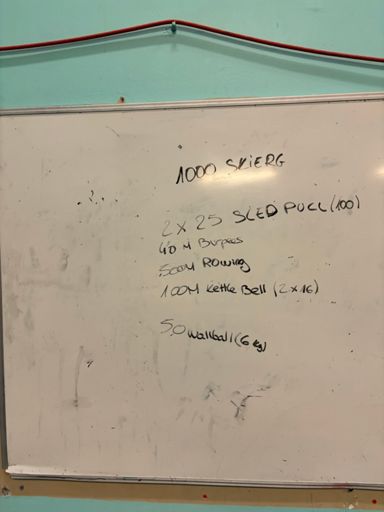 1000 SKIERG
2 x 25 SLED PULL (100)
40 M Burpees
500M Rowing
100M Kettle Bell (2 x 16)
50 wallball (6 kg)